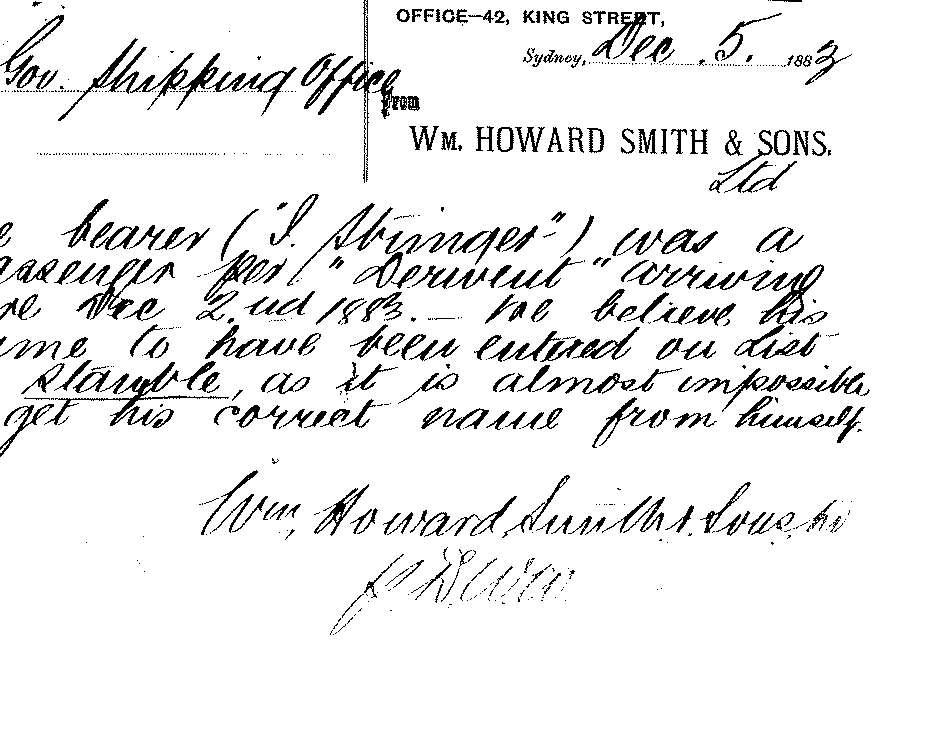 OFFICE—42, KING STREET,
Sydney, Dec. 5. 1883
Gov. Shipping Office
From
WM. HOWARD SMITH & SONS.
Ltd
e bearer ("I. Stringer") was a
assenger per "Derwent" arriving
re Dec 2nd 1883. — We believe his
ame to have been entered on List
, as it is almost impossible
get his correct name from himself.
Wm. Howard Smith & Sons, Ltd